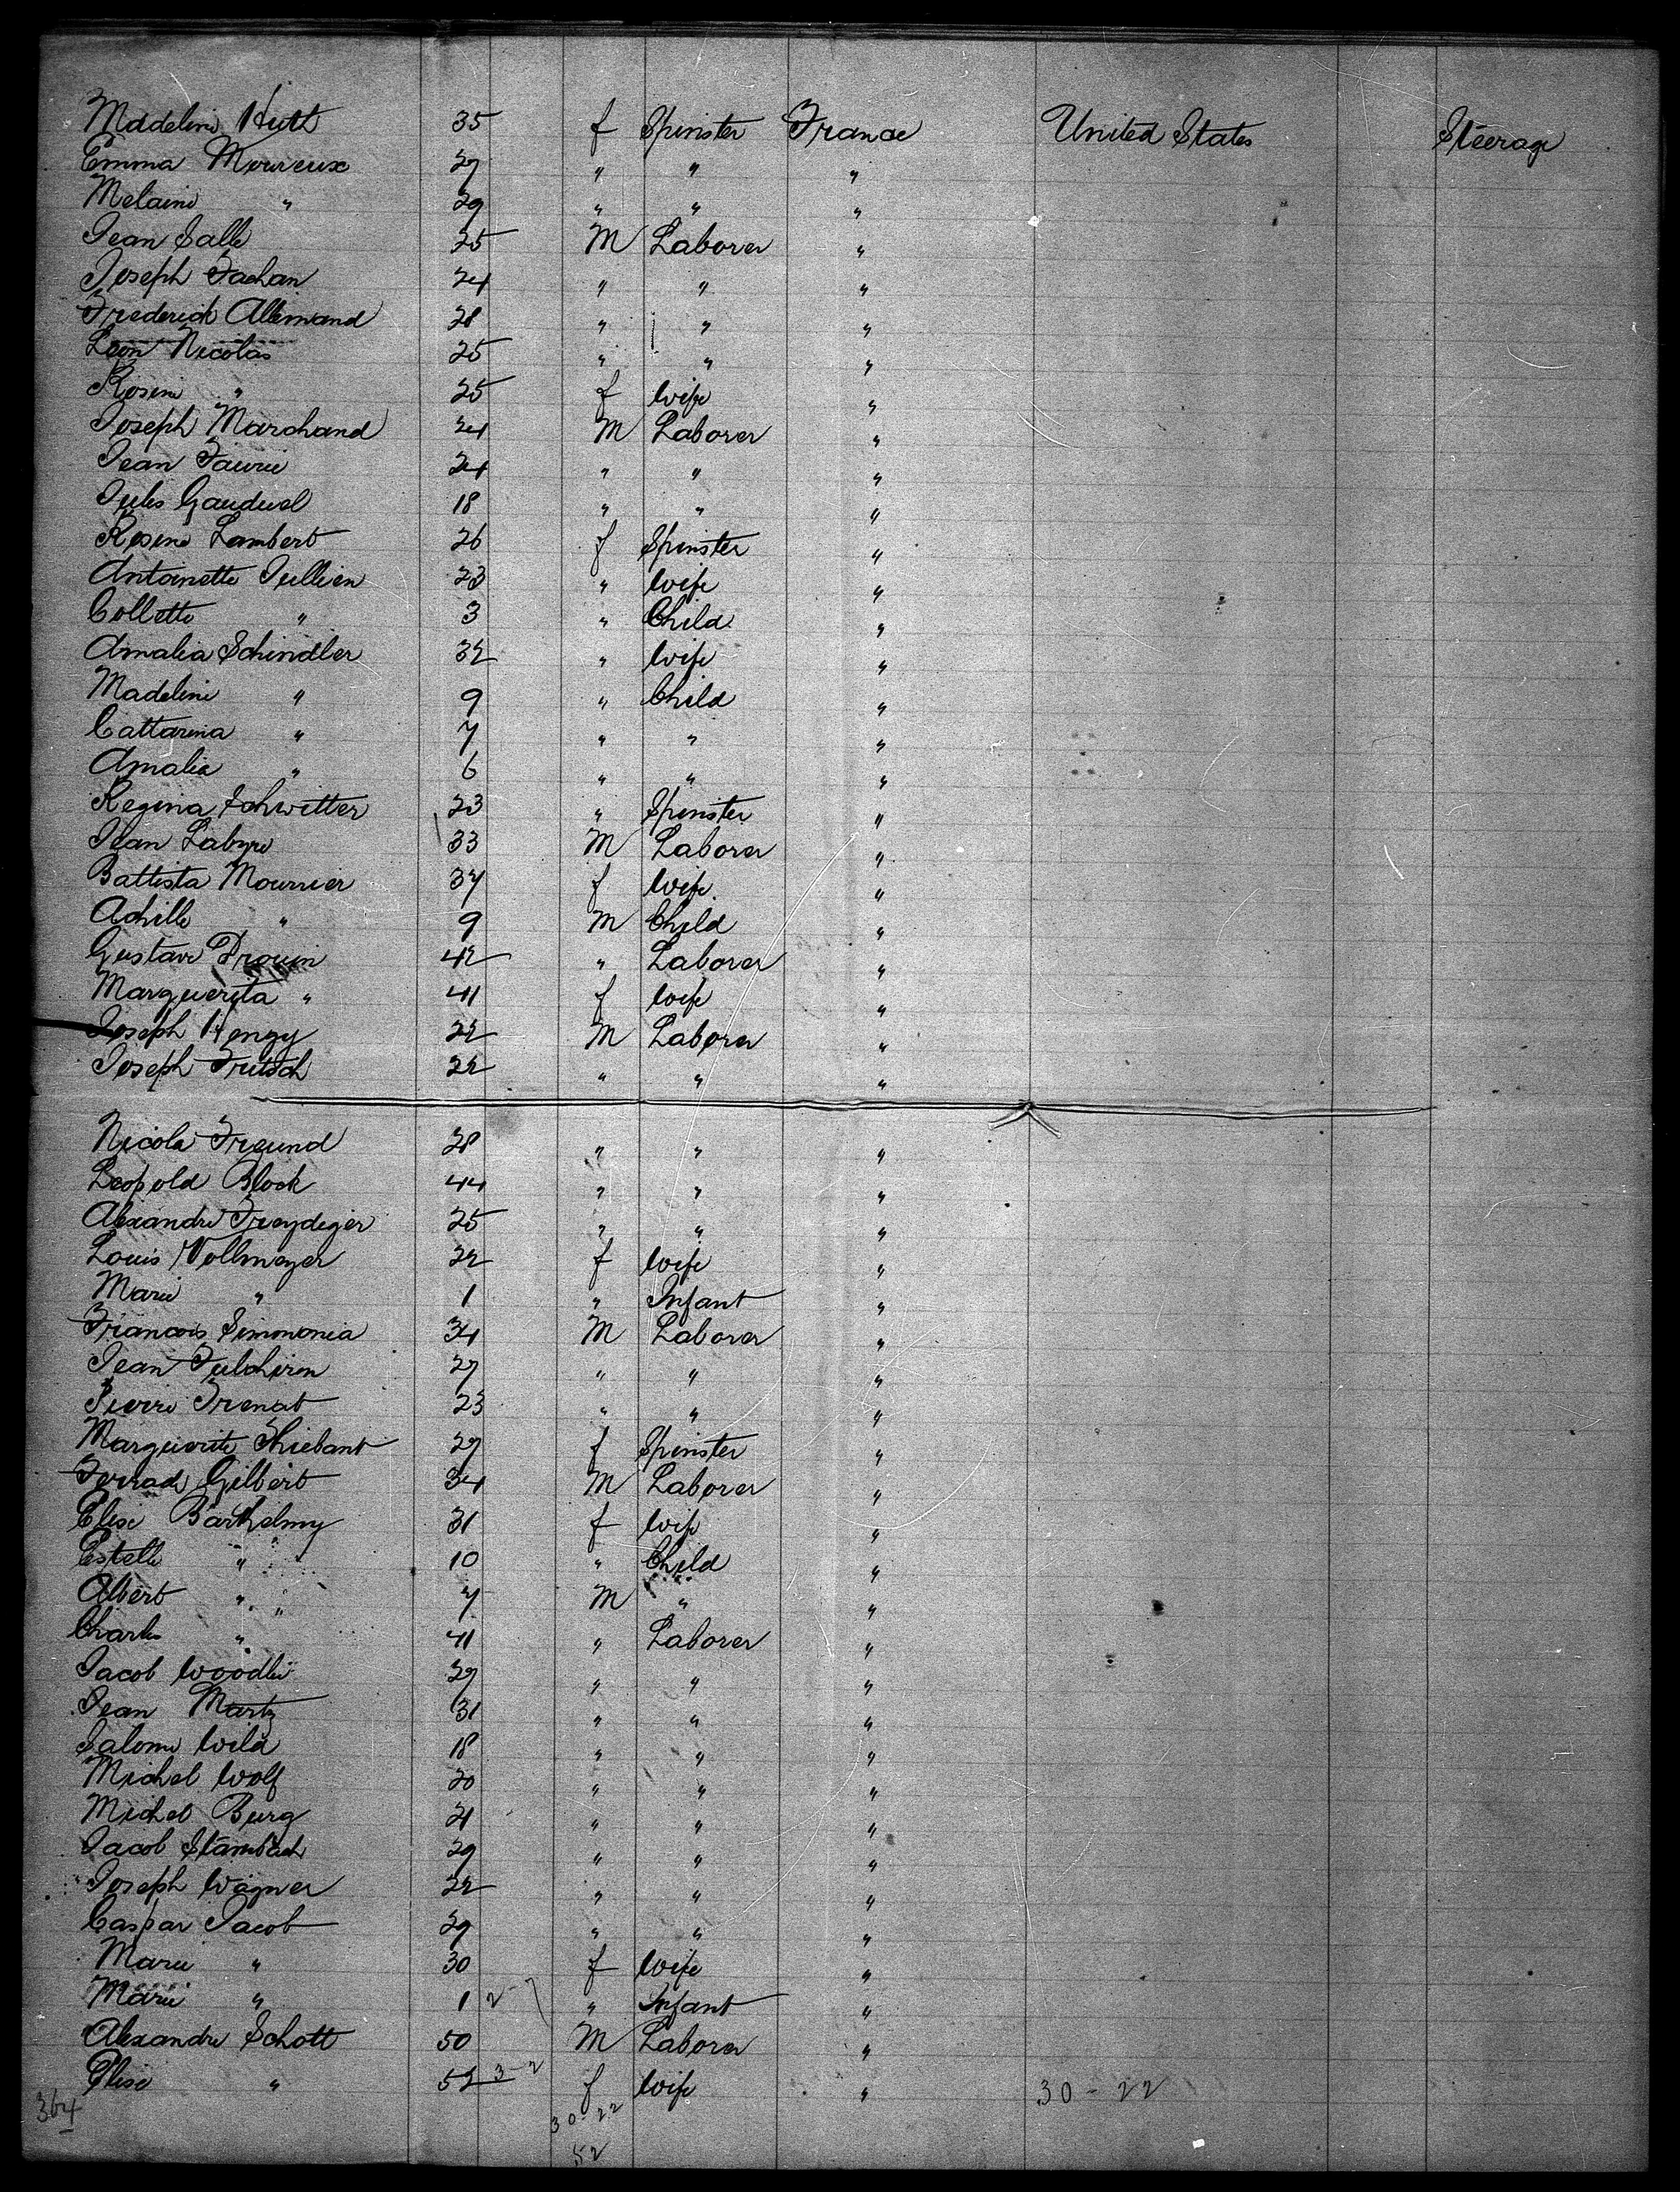 Madeline Huth 35 f Spinster France United States Steerage
Emma Moureux 27 " " "
Melaine " 29 " " "
Jean Salle 25 M Laborer "
Joseph Fachan 24 " " "
Frederick Allemand 28 " " "
Leon Nicolas 25 " " "
Rosine " 25 f wife "
Joseph Marchand 24 M Laborer "
Jean Faurie 24 " " "
Jules 18 " " "
Rosine Lambert 26 f Spinster "
Antoinette Jullien 23 " wife "
Collette " 3 " Child "
Amalia Schindler 32 " wife "
Madeline " 9 " Child "
Cattarina " 7 " " "
Amalia " 6 " " "
Regina Schwitter 23 " Spinster "
Jean 33 M Laborer "
Battista Mourrier 37 f wife "
Achille " 9 M Child "
Gustave Drouin 42 " Laborer "
Marguerita " 41 f wife "
Joseph Hengy 22 M Laborer "
Joseph Fritsch 22 " " "
Nicola Freund 28 " " "
Leopold Block 44 " " "
Alexandre Freydeger 25 " " "
Louis Vollmeyer 22 f wife "
Marie " 1 " Infant "
Francois Simmonia 34 M Laborer "
Jean Fulchiren 27 " " "
Pierre Frenat 23 " " "
Marguerite Thiebant 29 f Spinster "
Gilbert 34 M Laborer "
Elise Barthelmy 31 f wife "
Estelle " 10 " Child "
Albert " 7 M " "
Charles " 41 " Laborer "
Jacob 29 " " "
Jean Martz 31 " " "
Salome Wild 18 " " "
Michel Wolf 20 " " "
Michel Burg 21 " " "
Jacob Stambach 29 " " "
Joseph Wagner 22 " " "
Caspar Jacob 29 " " "
Marie " 30 f wife "
Marie " 1 2 " Infant "
Alexandre Schott 50 M Laborer "
Elise " 52 3-2 f wife " 30-22
364 30-22
52